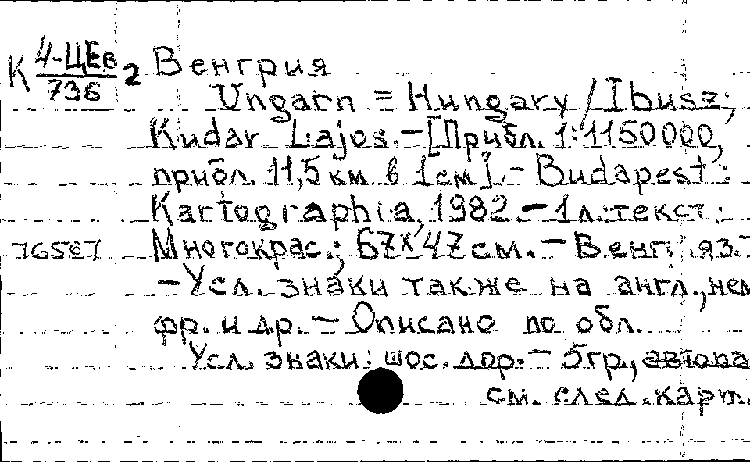 К 4-ЦЕв 2 Венгрия
736
Ungarn = Hungary / Ibusz;
Kudar Lajos. – [Прибл. 1:1150000,
прибл. 11,5 км в 1 см]. – Budapest:
Kartographia, 1982. – 1 л.: текст;
76587 Многокрас.; 67х47 см. – Венг. яз. –
– Усл. знаки также на англ., нем
фр. и др. – Описано по обл.
Усл. знаки: шос. дор. – 5 гр.,
см. след. карт.